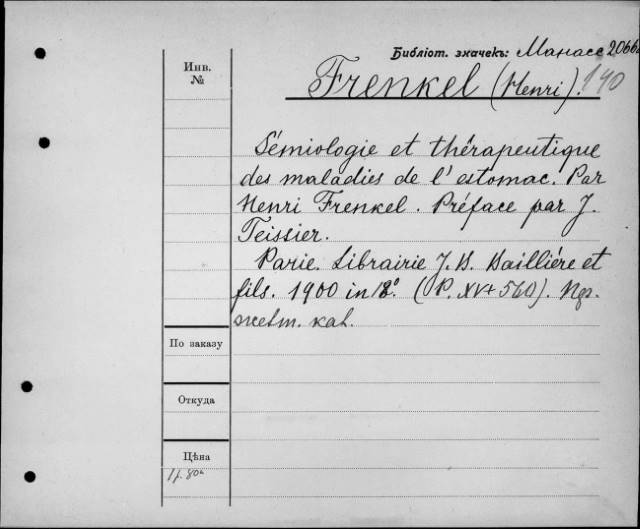 Библіот. значекъ: Манасе 2066
Инв. №
Frenkel (Henri). 140
Sémiologie et thérapeutique
des maladies de l'estomac. Par
Henri Frenkel. Préface par J.
Teissier.
Paris. Librairie J. B. Baillière et
fils. 1900 in 18°. (P. XV+560).
жетт. кат.
По заказу
Откуда
Цѣна